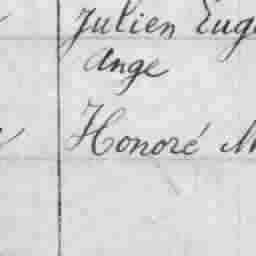 Julien Eug
Ange
Honoré M